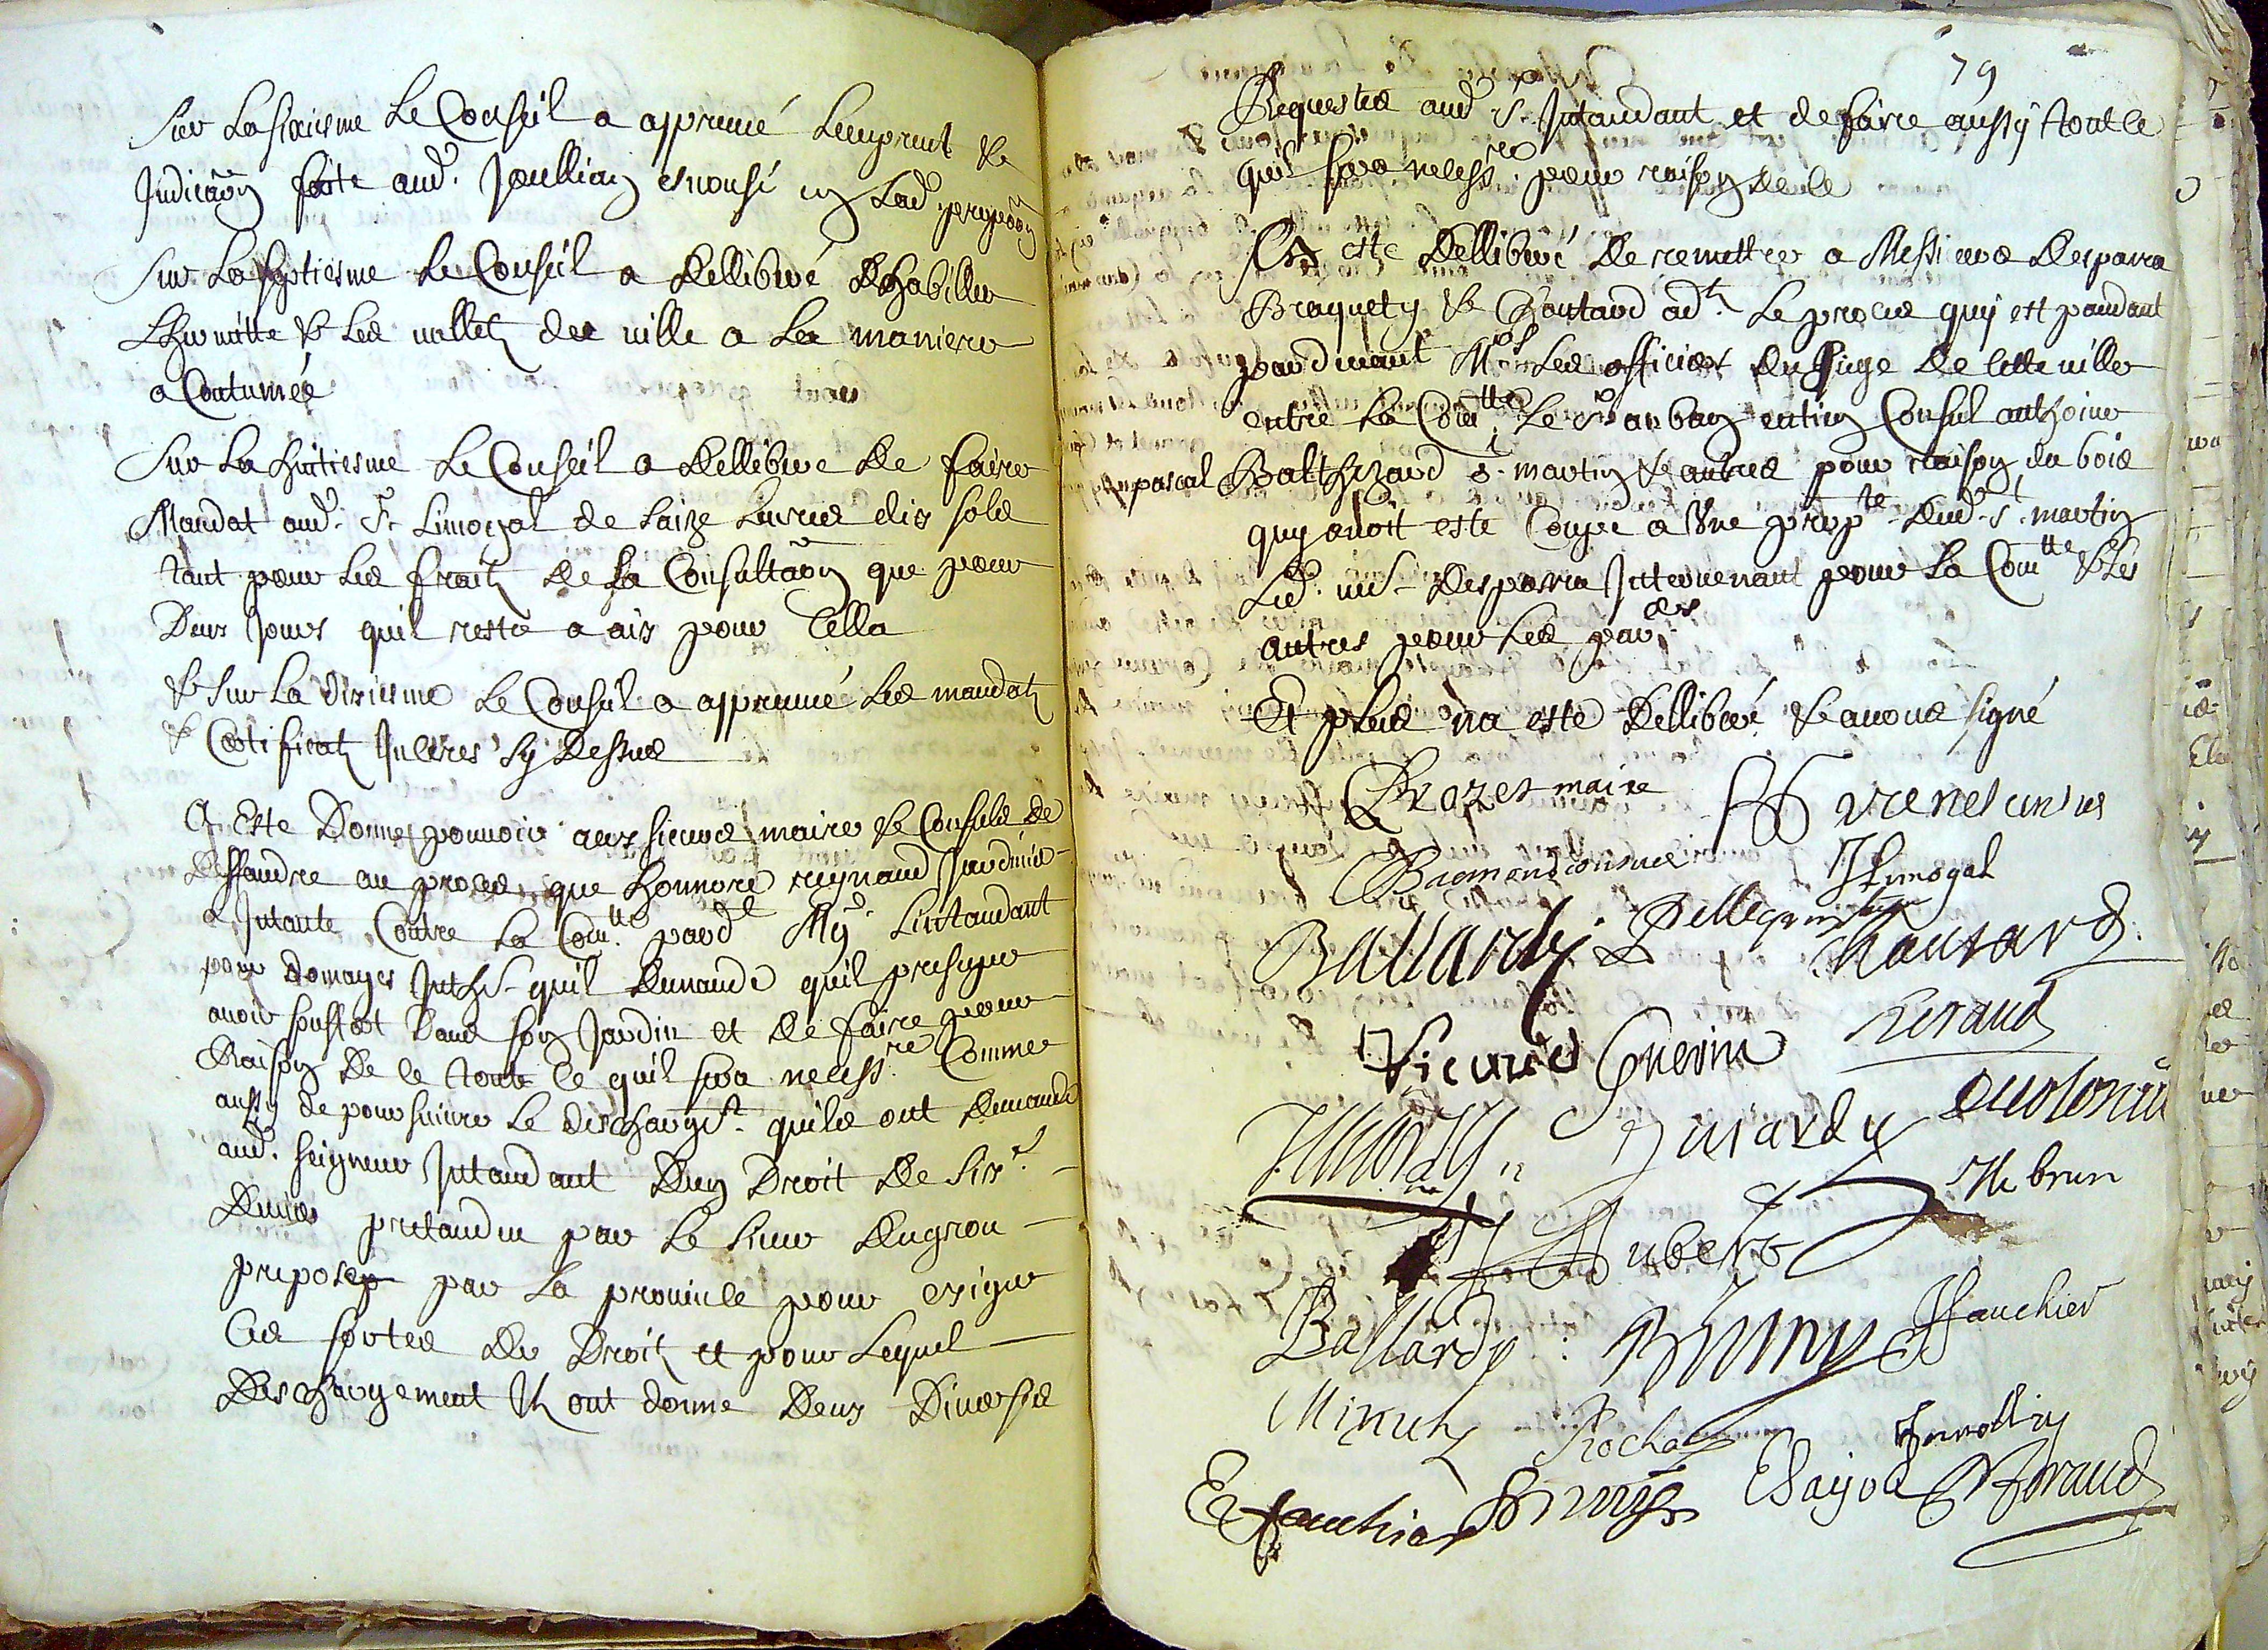 Sur La sixiesme Le Conseil a appruué Lemprunt &
Judica͠on faite aud. Joullian enonsé en Lad. propo͠on
Sur La septiesme Le Conseil a Dellibéré Dhabiller
Lhermitte & Les vallets de ville a La maniere
a Coutumée
Sur La huitiesme Le Conseil a Dellibere De faire
Mandat aud. Sr. Limogal de Saize Liures dix sols
tant pour Les frais De La Consulta͠on que pour
Deux Jours quil resta a aix pour Cella
& Sur La dixiesme Le Conseil a appruué Les mandats
& Certificats Inserés sy Dessus
A Este Donné pouuoir aux sieurs maire & Consuls De
Deffandre au proces que honnoré reynaud Jardinier
a Intanté Contre La Comtté pard. Mgr Lintandant
pour domages Inths. quil Demande quil presupose
auoir souffert Dans son Jardin et De faire pour
Raison De ce toute ce quil sera necessre Comme
aussy de poursuiure Le deschargt. quils ont Demandé
aud. seigneur Intandant Dun Droit De six
Deniers pretandu par Le sieur Dugrou
preposé par La prouince pour exiger
Ces sortes De Droits et pour Lequel
Deschargement Ils ont donné Deux Diuerses
79
Requestes aud. Sr. Intandant et de faire aussy tout ce
quil sera necessre pour raison de ce
A este Dellibéré De remettre a Messieurs Desparra
Braquety & Chautard adts. Le proces quy est pandant
pardeuant Mrs Les officiers du siege De cette ville
entre La Comtté Le Sr auban entien Consul anthoine
pascal Balthezard St. martin & autres pour raison du bois
quy auoit este Coupé a Une propté. dud. St. martin
Led. me. Desparra Interuenant pour La Comtté & Les
autres pour Les parers
Et plus na esté Dellibéré & auons signé
Brozet maire
Raemond consul
Limogal
Ballardy
Pellegrin
Chautard
Guerin
Reraud
Gerardy
Aubert
H brun
Ballardy
Bruny
ffauchier
Minuty
Rocha
E fauchier
Bruny